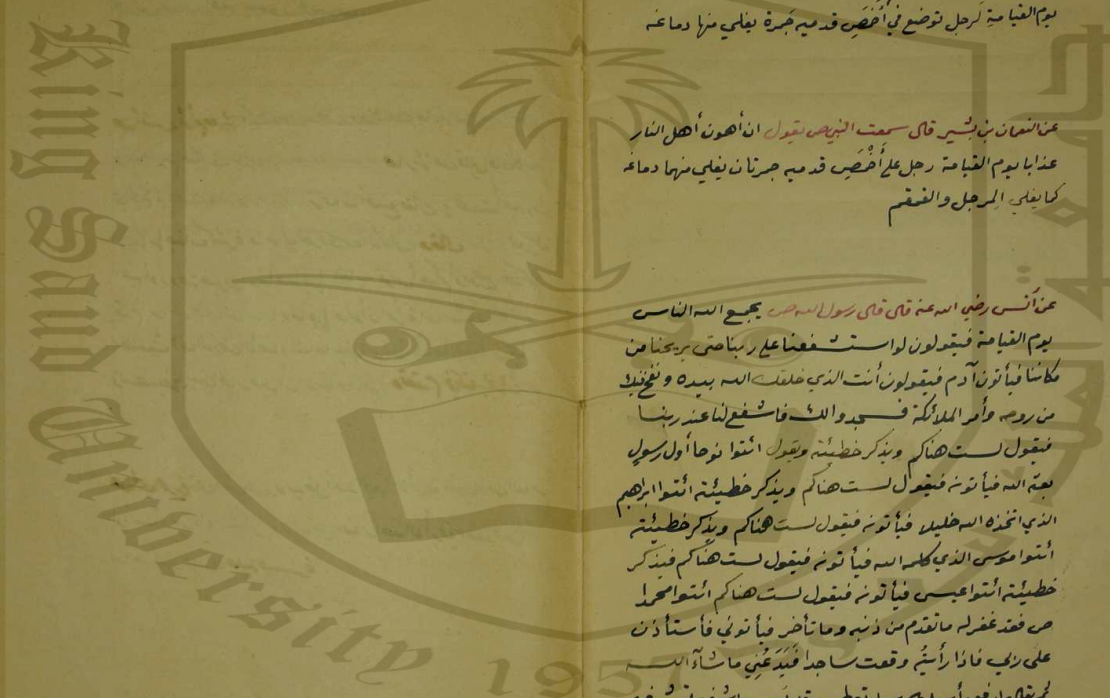 يوم القيامة لرجل توضع في أَخْمَصِ قدميه جَمرة يغلي منها دماغه
عن النعمان بن بشير قال سمعت النبي ص يقول ان أهون أهل النار
عذابا يوم القيامة رجل على أَخْمَصِ قدميه جمرتان يغلي منهما دماغه
كما يغلي المِرجل والقمقم
عن أنس رضي الله عنه قال قال رسول الله ص يجمع الله الناس
يوم القيامة فيقولون لو استشفعنا على ربنا حتى يريحنا من
مكاننا فيأتون آدم فيقولون أنت الذي خلقك الله بيده ونفخ فيك
من روحه وأمر الملائكة فسجدوا لك فاشفع لنا عند ربنا
فيقول لست هناكم ويذكر خطيئته ويقول ائتوا نوحا أول رسولٍ
بعثه الله فيأتونه فيقول لست هناكم ويذكر خطيئته ائتوا ابراهيم
الذي اتخذه الله خليلا فيأتونه فيقول لست هناكم ويذكر خطيئته
ائتوا موسى الذي كلمه الله فيأتونه فيقول لست هناكم فيذكر
خطيئته ائتوا عيسى فيأتونه فيقول لست هناكم ائتوا محمدا
ص فقد غفر له ما تقدم من ذنبه وما تأخر فيأتوني فأستأذن
على ربي فاذا رأيتُه وقعت ساجدا فَيَدَعُنِي ما شآء الله
King Saud University 1957
جامعة الملك